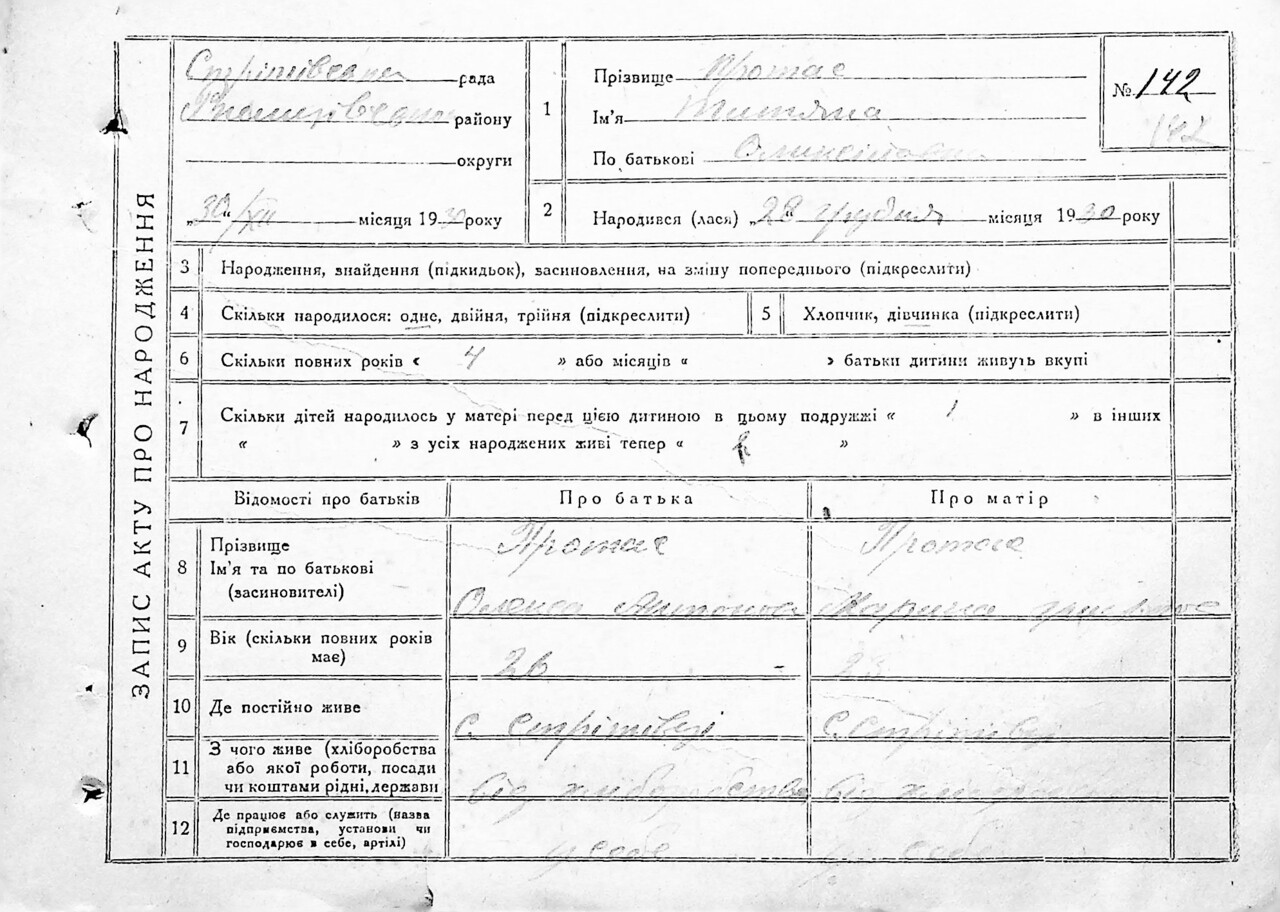 ЗАПИС АКТУ ПРО НАРОДЖЕННЯ
рада
району
округи
„30“/XII місяця 1930 року
1
Прізвище Протас
Ім’я Титяна
По батькові
№ 142
142
2
Народився (лася) „28“ грудня місяця 1930 року
3 Народження, знайдення (підкидьок), засиновлення, на зміну попереднього (підкреслити)
4 Скільки народилося: одне, двійня, трійня (підкреслити)
5 Хлопчик, дівчинка (підкреслити)
6 Скільки повних років « 4 » або місяців « » батьки дитини живуть вкупі
7 Скільки дітей народилось у матері перед цією дитиною в цьому подружжі « 1 » в інших
« » з усіх народжених живі тепер « »
Відомості про батьків Про батька Про матір
8 Прізвище
Ім’я та по батькові
(засиновителі)
Протас Протас
Олекса Антонов Марина
9 Вік (скільки повних років
має)
26 23
10 Де постійно живе
с. Стріпівці С. Стріпівці
11 З чого живе (хліборобства
або якої роботи, посади
чи коштами рідні, держави
від хліборобства від
12 Де працює або служить (назва
підприємства, установи чи
господарює в себе, артілі)
у себе у себе